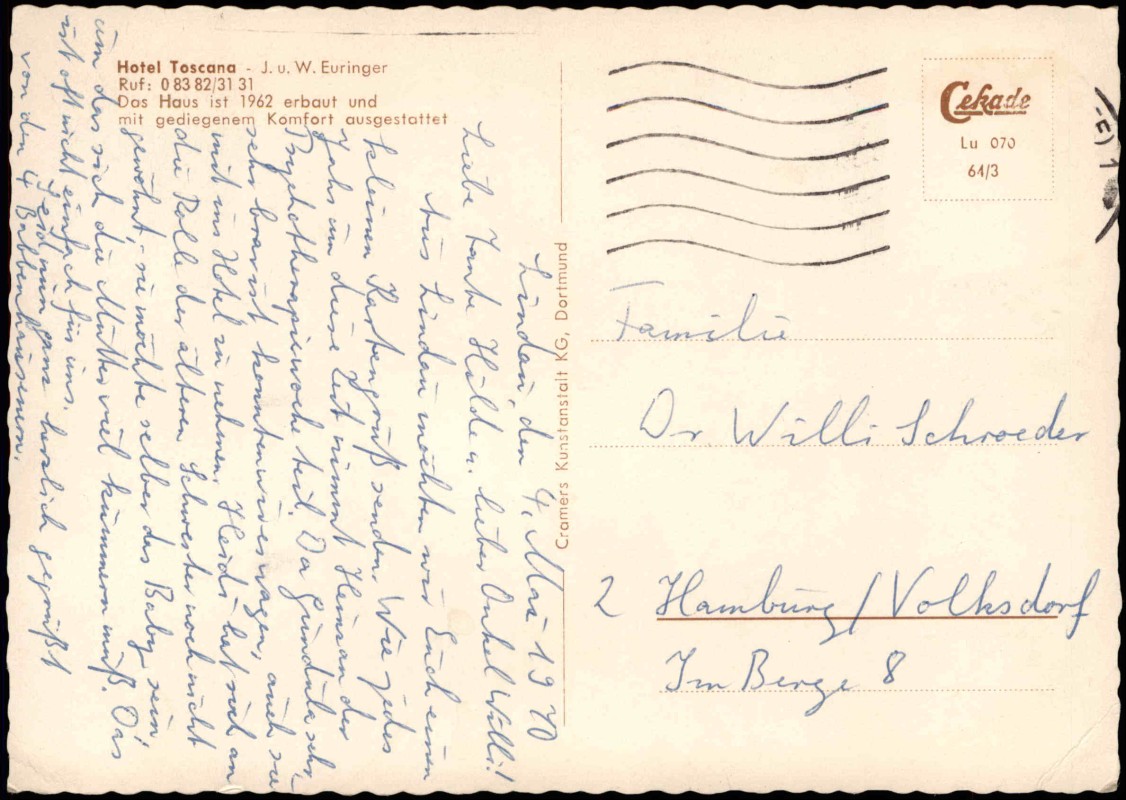 Hotel Toscana - J. u. W. Euringer
Ruf: 0 83 82/31 31
Das Haus ist 1962 erbaut und
mit gediegenem Komfort ausgestattet
Lindau, den 4. Mai 1970
Liebe Tante Hilde u. lieber Onkel Willi!
Aus Lindau möchten wir Euch einen
kleinen Kartengruß senden. Wie jedes
Jahr um diese Zeit nimmt Heinz an der
Psychotherapiewoche teil. Da Gundula sehr,
sehr brav ist konnten wir es wagen, auch sie
mit ins Hotel zu nehmen. Heidi hat sich an
die Rolle der älteren Schwester noch nicht
gewöhnt, sie möchte selber das Baby sein,
um das sich die Mutter viel kümmern muß. Das
ist oft nicht einfach für uns.
Seid nun ganz herzlich gegrüßt
von den 4
Cramers Kunstanstalt KG, Dortmund
Cekade
Lu 070
64/3
Familie
Dr. Willi Schroeder
2 Hamburg/Volksdorf
Im Berge 8